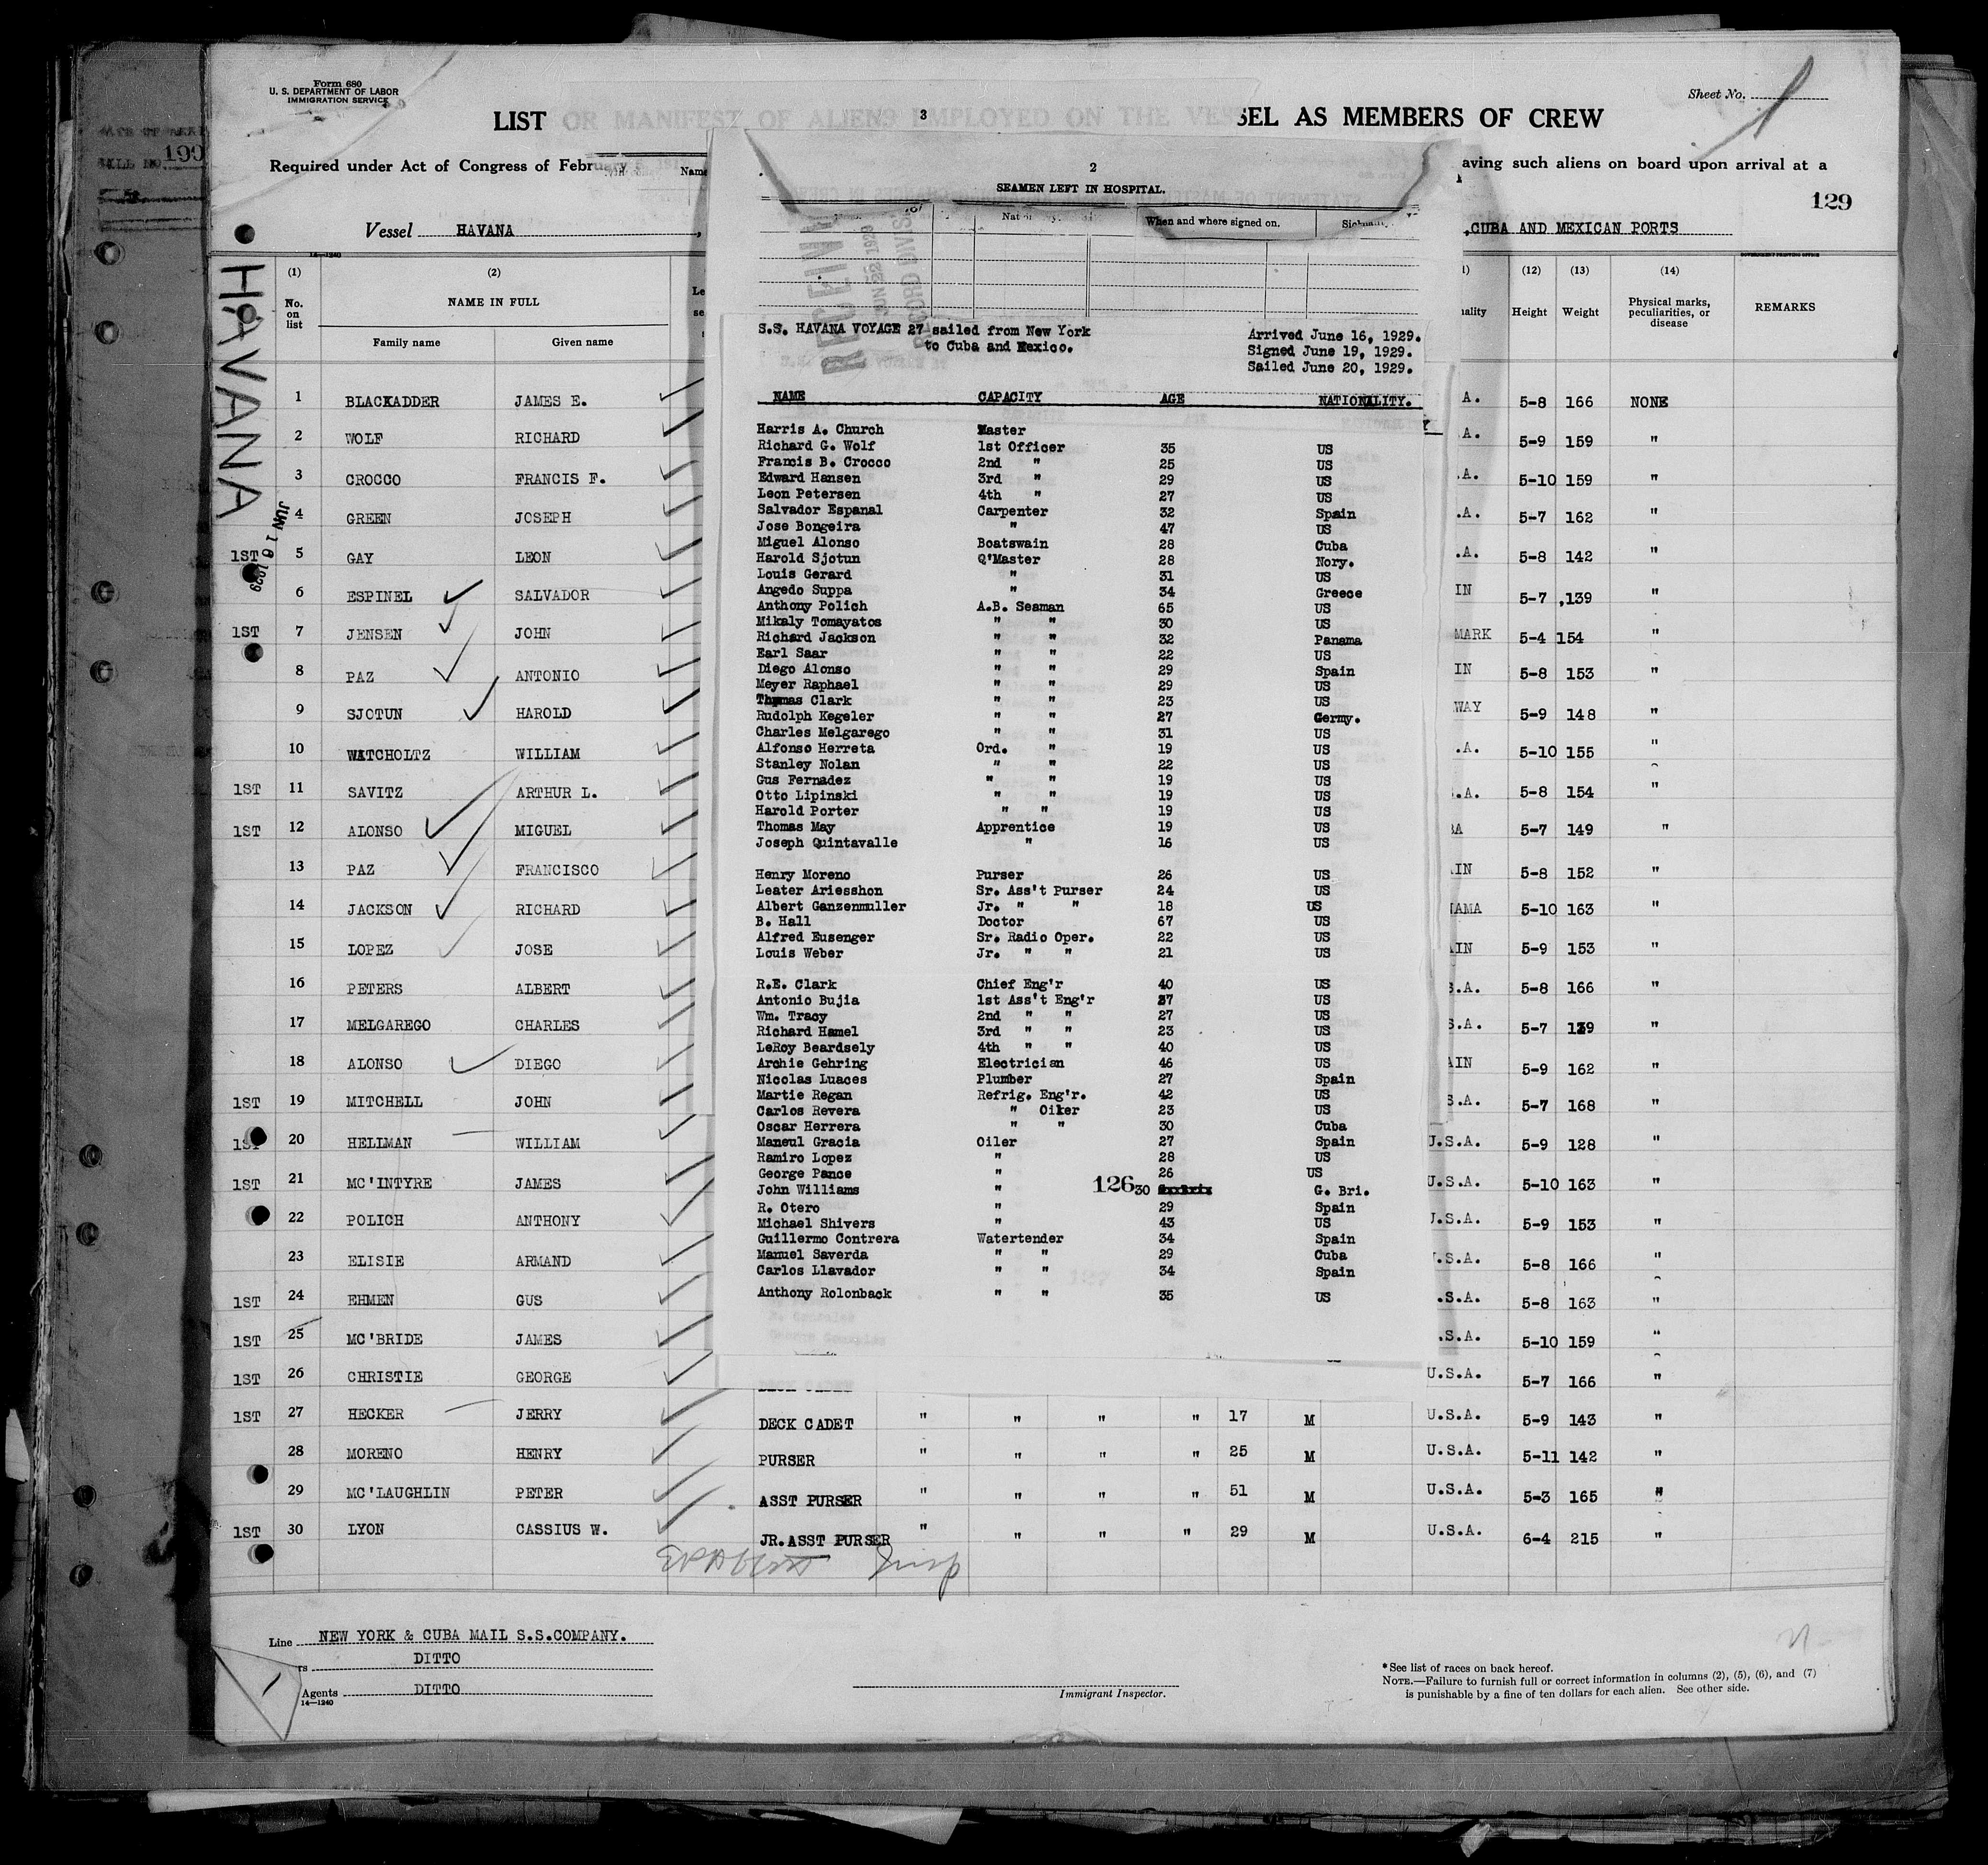 Form 680
U. S. DEPARTMENT OF LABOR
IMMIGRATION SERVICE
Sheet No.
LIST OR MANIFEST OF ALIENS EMPLOYED ON THE VESSEL AS MEMBERS OF CREW
3
Required under Act of Congress of February
aving such aliens on board upon arrival at a
129
Vessel HAVANA
,CUBA AND MEXICAN PORTS
HAVANA
JUN 16 1929
(1) (2) (12) (13) (14)
No. on list NAME IN FULL Height Weight Physical marks, peculiarities, or disease REMARKS
Family name Given name
1 BLACKADDER JAMES E. A. 5-8 166 NONE
2 WOLF RICHARD A. 5-9 159 "
3 CROCCO FRANCIS F. .A. 5-10 159 "
4 GREEN JOSEPH .A. 5-7 162 "
1ST 5 GAY LEON .A. 5-8 142 "
6 ESPINEL SALVADOR IN 5-7 ,139 "
1ST 7 JENSEN JOHN MARK 5-4 154 "
8 PAZ ANTONIO IN 5-8 153 "
9 SJOTUN HAROLD WAY 5-9 148 "
10 WATCHOLTZ WILLIAM .A. 5-10 155 "
1ST 11 SAVITZ ARTHUR L. .A. 5-8 154 "
1ST 12 ALONSO MIGUEL BA 5-7 149 "
13 PAZ FRANCISCO IN 5-8 152 "
14 JACKSON RICHARD AMA 5-10 163 "
15 LOPEZ JOSE IN 5-9 153 "
16 PETERS ALBERT S.A. 5-8 166 "
17 MELGAREGO CHARLES S.A. 5-7 139 "
18 ALONSO DIEGO AIN 5-9 162 "
1ST 19 MITCHELL JOHN S.A. 5-7 168 "
1ST 20 HELLMAN WILLIAM U.S.A. 5-9 128 "
1ST 21 MC'INTYRE JAMES U.S.A. 5-10 163 "
22 POLICH ANTHONY U.S.A. 5-9 153 "
23 ELISIE ARMAND .S.A. 5-8 166 "
1ST 24 EHMEN GUS .S.A. 5-8 163 "
1ST 25 MC'BRIDE JAMES .S.A. 5-10 159 "
1ST 26 CHRISTIE GEORGE U.S.A. 5-7 166 "
1ST 27 HECKER JERRY DECK CADET " " " " 17 M U.S.A. 5-9 143 "
28 MORENO HENRY PURSER " " " " 25 M U.S.A. 5-11 142 "
29 MC'LAUGHLIN PETER ASST PURSER " " " " 51 M U.S.A. 5-3 165 "
1ST 30 LYON CASSIUS W. JR.ASST PURSER " " " " 29 M U.S.A. 6-4 215 "
Line NEW YORK & CUBA MAIL S.S.COMPANY.
DITTO
Agents DITTO
14—1240
Immigrant Inspector.
* See list of races on back hereof.
NOTE.—Failure to furnish full or correct information in columns (2), (5), (6), and (7)
is punishable by a fine of ten dollars for each alien. See other side.
2
SEAMEN LEFT IN HOSPITAL.
When and where signed on.
RECEIVED
S.S. HAVANA VOYAGE 27 sailed from New York
to Cuba and Mexico.
Arrived June 16, 1929.
Signed June 19, 1929.
Sailed June 20, 1929.
NAME CAPACITY AGE NATIONALITY.
Harris A. Church Master
Richard G. Wolf 1st Officer 35 US
Francis B. Crocco 2nd " 25 US
Edward Hansen 3rd " 29 US
Leon Petersen 4th " 27 US
Salvador Espanal Carpenter 32 Spain
Jose Bongeira " 47 US
Miguel Alonso Boatswain 28 Cuba
Harold Sjotun Q'Master 28 Nory.
Louis Gerard " 31 US
Angedo Suppa " 34 Greece
Anthony Polich A.B. Seaman 65 US
Mikaly Tomayatos " " 30 US
Richard Jackson " " 32 Panama
Earl Saar " " 22 US
Diego Alonso " " 29 Spain
Meyer Raphael " " 29 US
Thomas Clark " " 23 US
Rudolph Kegeler " " 27 Germy.
Charles Melgarego " " 31 US
Alfonso Herreta Ord. " 19 US
Stanley Nolan " " 22 US
Gus Fernadez " " 19 US
Otto Lipinski " " 19 US
Harold Porter " " 19 US
Thomas May Apprentice 19 US
Joseph Quintavalle " 16 US
Henry Moreno Purser 26 US
Leater Ariesshon Sr. Ass't Purser 24 US
Albert Ganzenmuller Jr. " " 18 US
B. Hall Doctor 67 US
Alfred Eusenger Sr. Radio Oper. 22 US
Louis Weber Jr. " " 21 US
R.E. Clark Chief Eng'r 40 US
Antonio Bujia 1st Ass't Eng'r 37 US
Wm. Tracy 2nd " " 27 US
Richard Hamel 3rd " " 23 US
LeRoy Beardsely 4th " " 40 US
Archie Gehring Electrician 46 US
Nicolas Luaces Plumber 27 Spain
Martie Regan Refrig. Eng'r. 42 US
Carlos Revera " Oiler 23 US
Oscar Herrera " " 30 Cuba
Maneul Gracia Oiler 27 Spain
Ramiro Lopez " 28 US
George Pance " 26 US
John Williams " 126 30 G. Bri.
R. Otero " 29 Spain
Michael Shivers " 43 US
Guillermo Contrera Watertender 34 Spain
Manuel Saverda " " 29 Cuba
Carlos Llavador " " 34 Spain
Anthony Rolonback " " 35 US